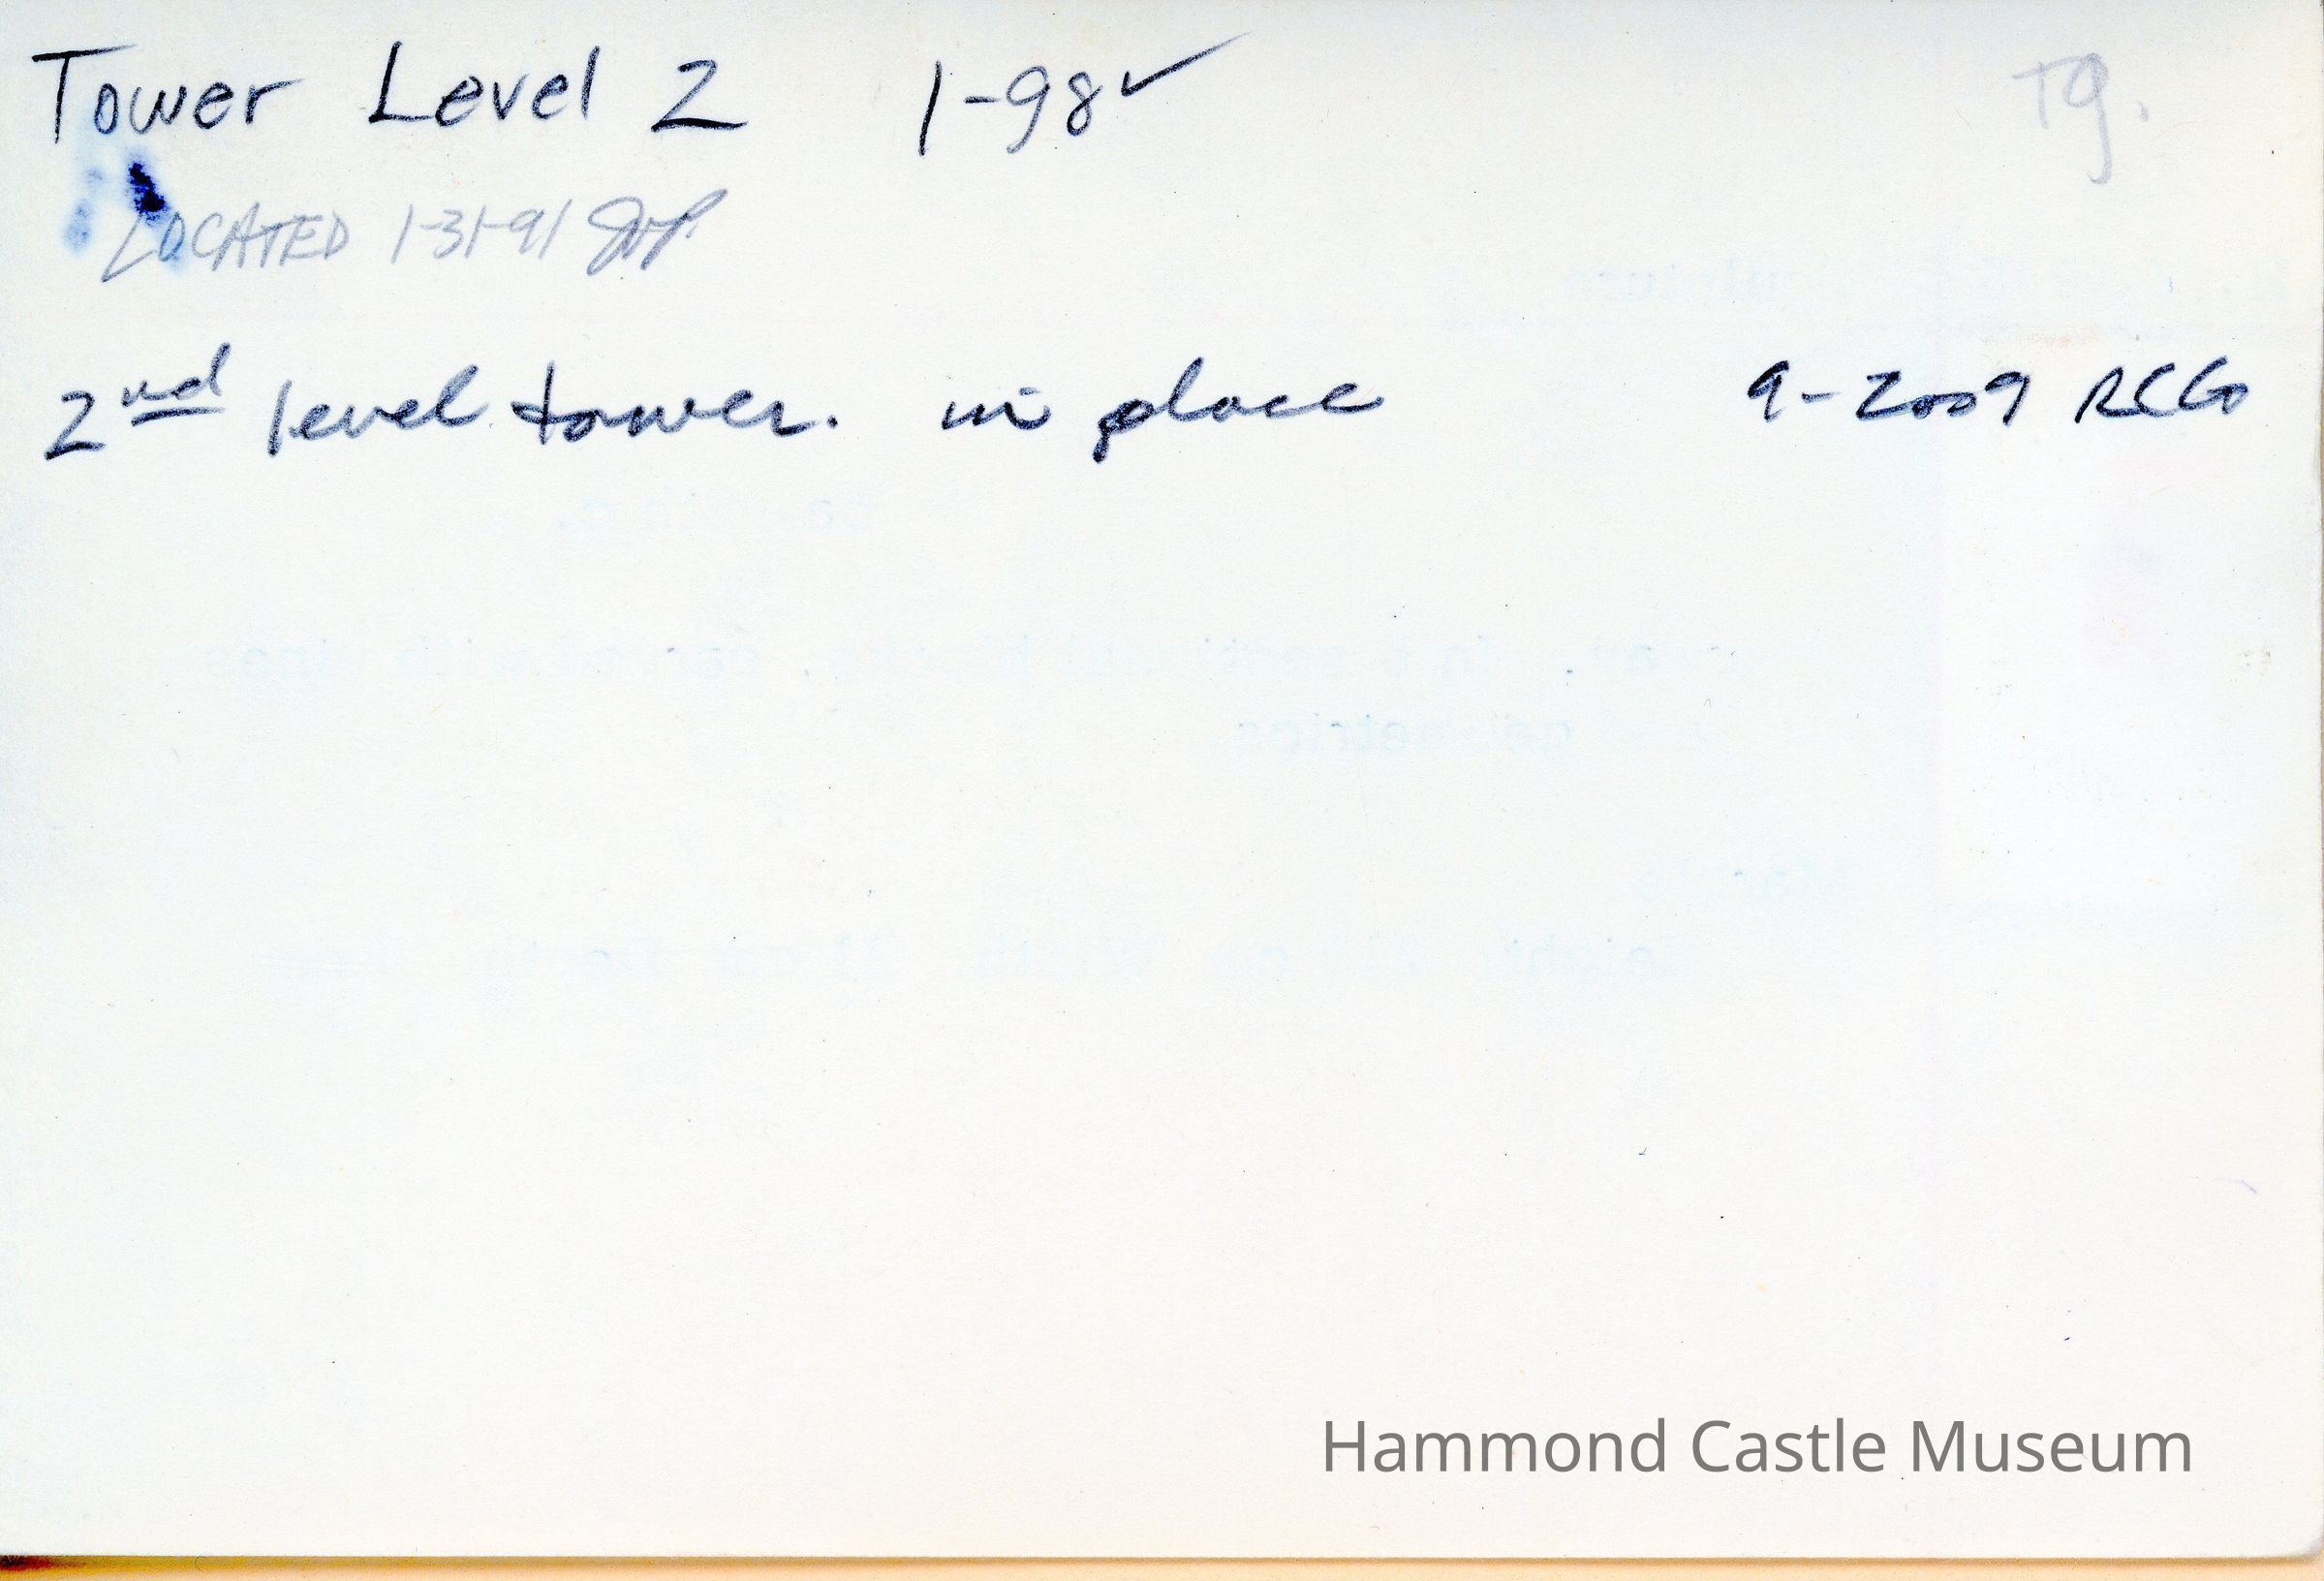 Tower Level 2 1-98 ✓ T9.
LOCATED 1-31-91
2nd level tower. in place 9-2009 RCG
Hammond Castle Museum